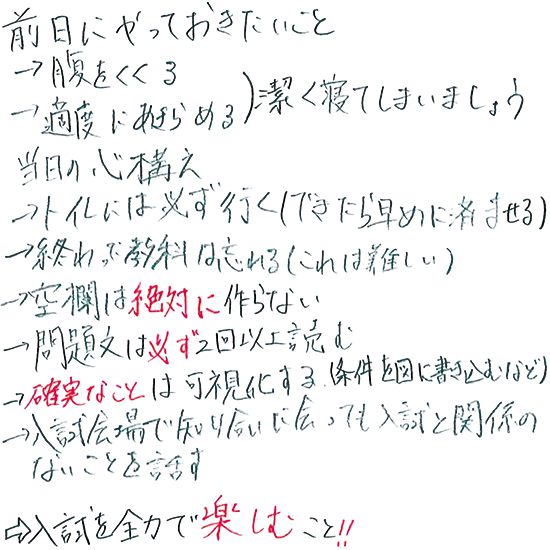 前日にやっておきたいこと
→腹をくくる
→適度にあきらめる)潔く寝てしまいましょう
当日の心構え
→トイレには必ず行く(できたら早めに済ませる)
→終わった教科は忘れる(これは難しい)
→空欄は絶対に作らない
→問題文は必ず2回以上読む
→確実なことは可視化する(条件を図に書き込むなど)
→入試会場で知り合いに会っても入試と関係の
ないことを話す
⇨入試を全力で楽しむこと!!